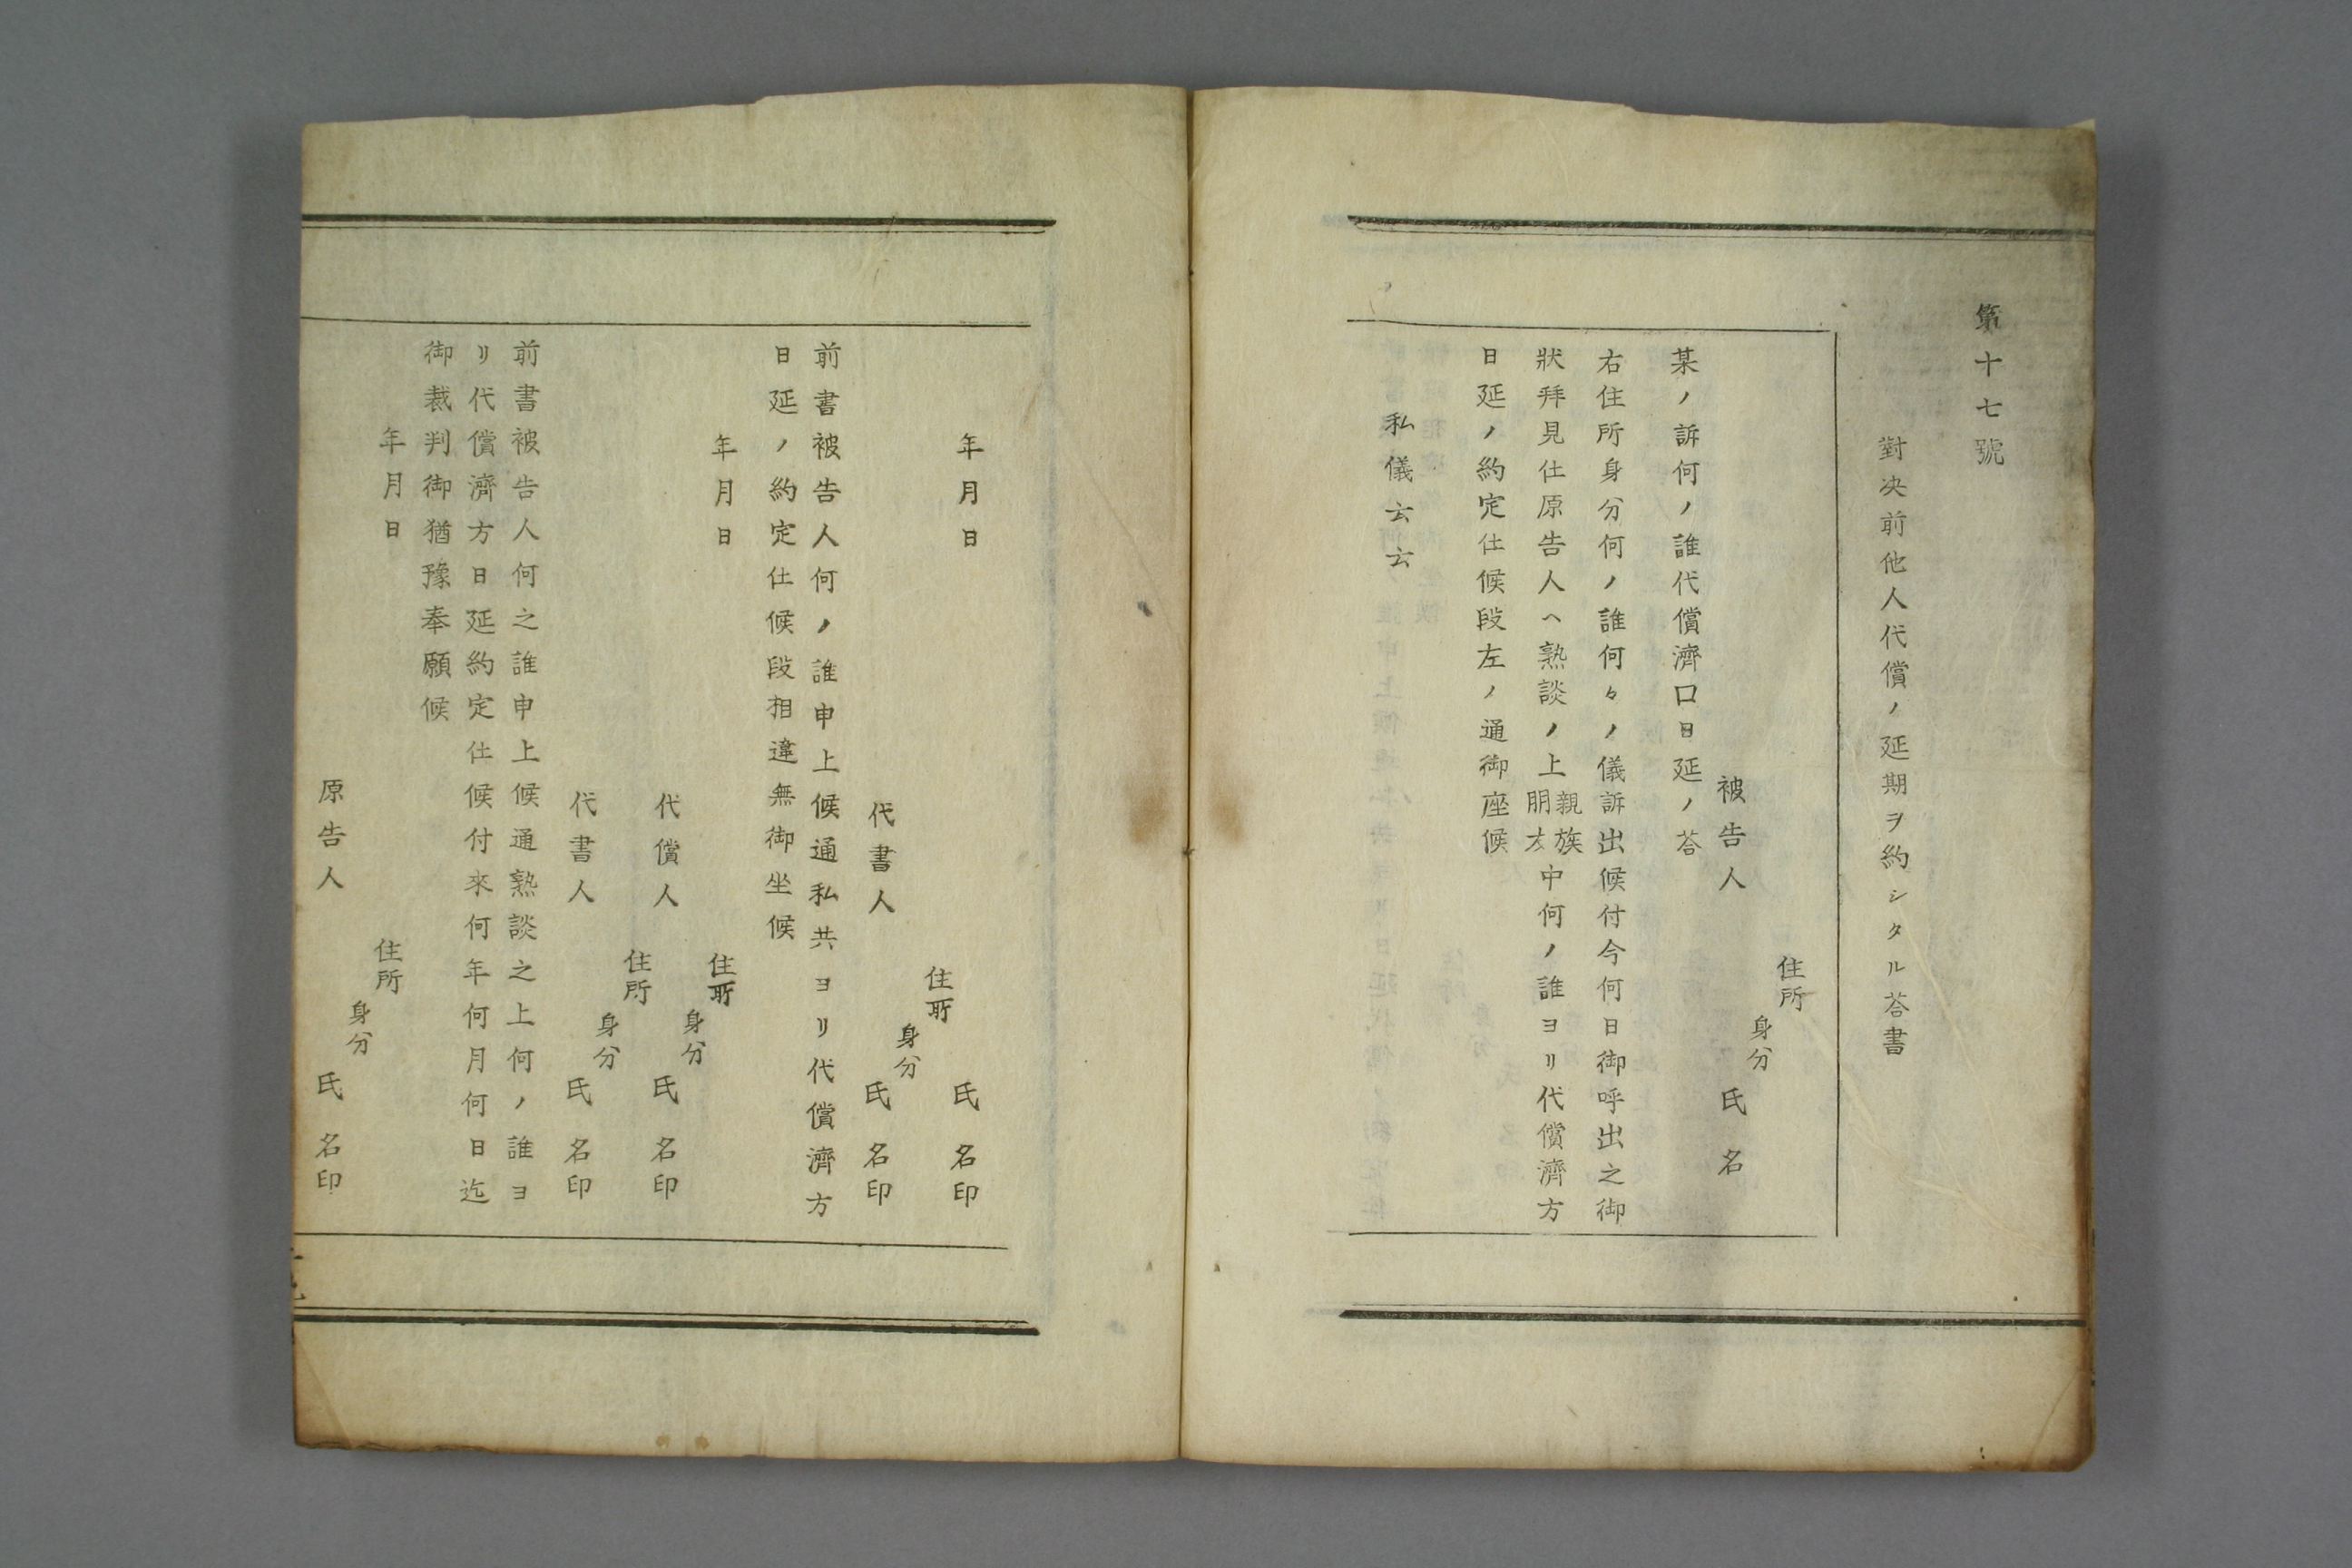 第十七號
對决前他人代償ノ延期ヲ約シタル荅書
住所
身分
被告人 氏名
某ノ訴何ノ誰代償濟口日延ノ荅
右住所身分何ノ誰何々ノ儀訴出候付今何日御呼出之御
狀拜見仕原告人ヘ熟談ノ上親族朋友中何ノ誰ヨリ代償濟方
日延ノ約定仕候段左ノ通御座候
私儀云云
年月日 氏名印
住所
身分
代書人 氏名印
前書被告人何ノ誰申上候通私共ヨリ代償濟方
日延ノ約定仕候段相違無御坐候
年月日 住所
身分
代償人 氏名印
住所
身分
代書人 氏名印
前書被告人何之誰申上候通熟談之上何ノ誰ヨ
リ代償濟方日延約定仕候付來何年何月何日迄
御裁判御猶豫奉願候
年月日 住所
身分
原告人 氏名印